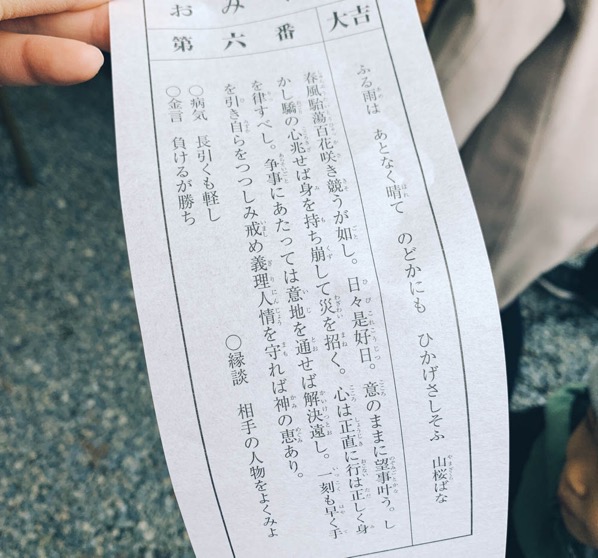 おみ
第六番
大吉
ふる雨は あとなく晴て のどかにも ひかげさしそふ 山桜ばな
春風駘蕩百花咲き競うが如し。日々是好日。意のままに望事叶う。し
かし驕の心兆せば身を持ち崩して災を招く。心は正直に行は正しく身
を律すべし。争事にあたっては意地を通せば解決遠し。一刻も早く手
を引き自らをつつしみ戒め義理人情を守れば神の恵あり。
○病気 長引くも軽し
○縁談 相手の人物をよくみよ
○金言 負けるが勝ち